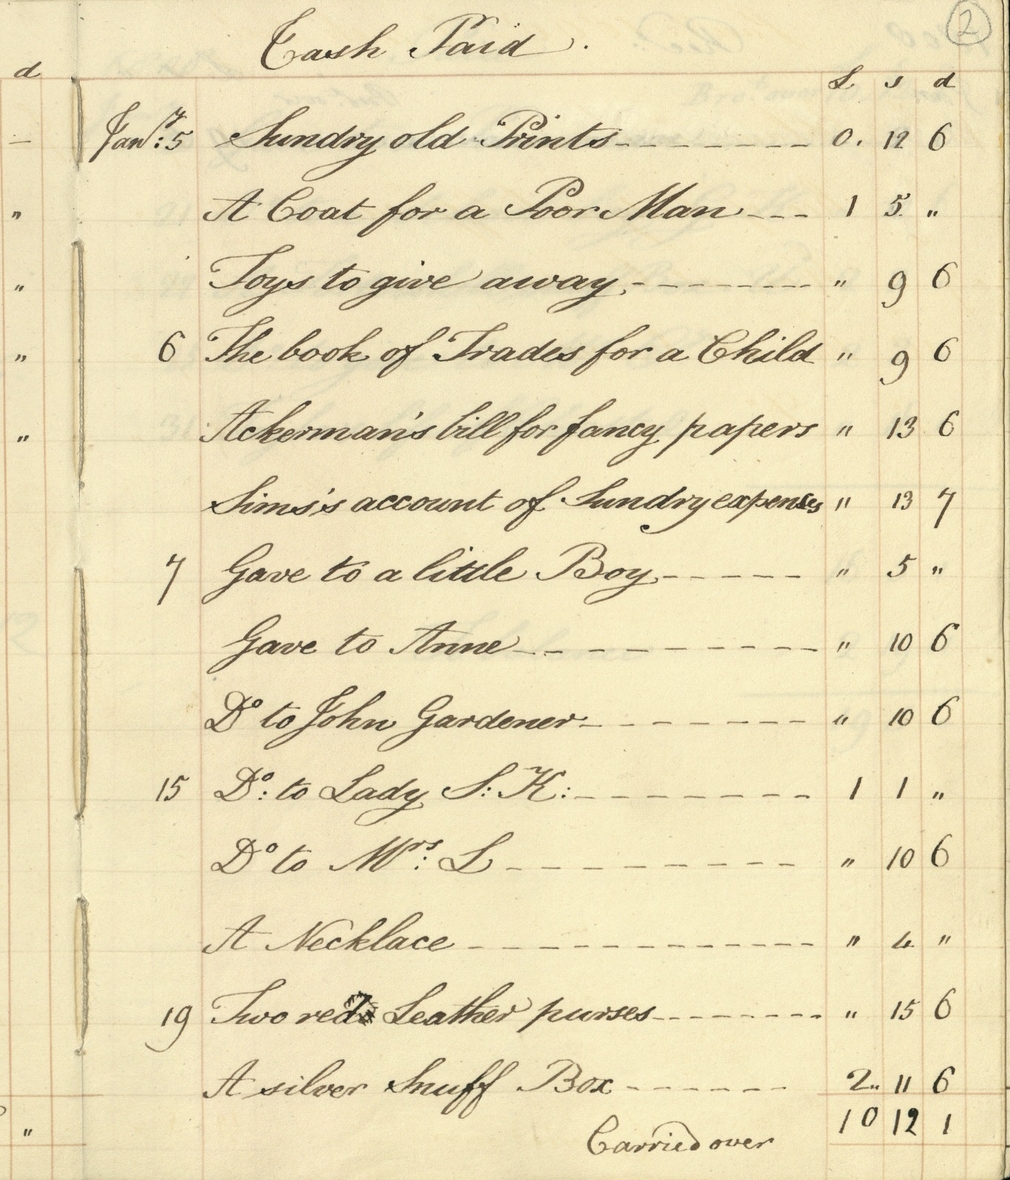 2
Cash Paid.
d
£ s d
Jan.y: 5 Sundry old Prints 0. 12 6
A Coat for a Poor Man 1 5 "
Toys to give away. " 9 6
6 The book of Trades for a Child " 9 6
Ackerman's bill for fancy papers " 13 6
Sims's account of Sundry expenses " 13 7
7 Gave to a little Boy " 5 "
Gave to Anne " 10 6
Do to John Gardener " 10 6
15 Do: to Lady S: K: 1 1 "
Do to Mrs: L " 10 6
A Necklace " 4 "
19 Two red Leather purses " 15 6
A silver Snuff Box 2 " 11 6
Carried over 10 12 1